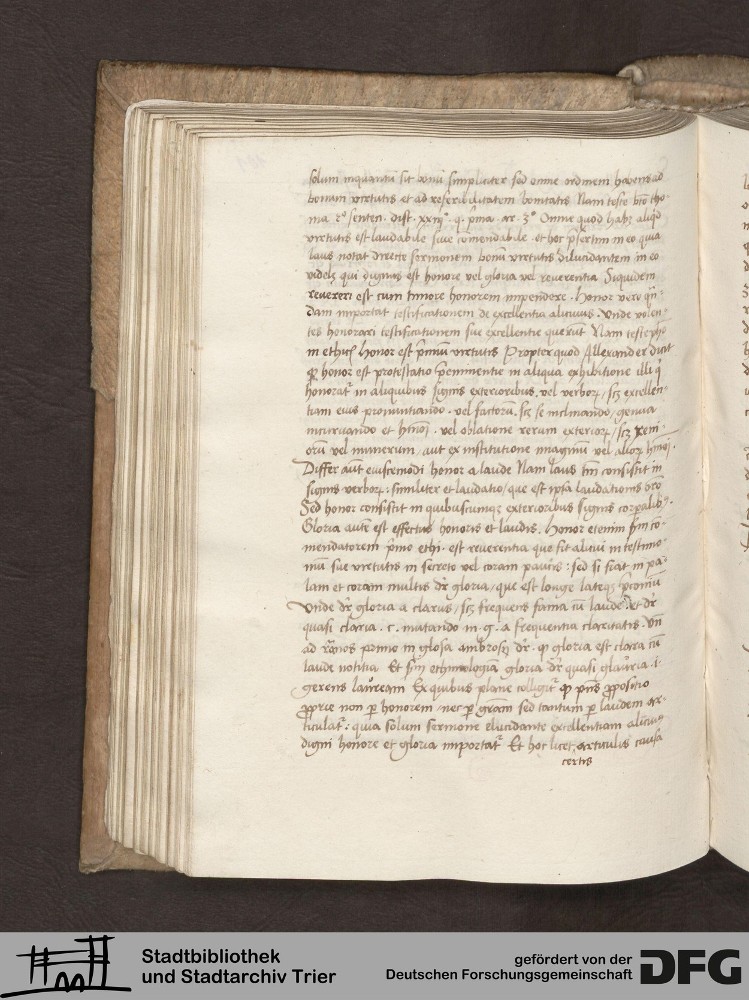 solum inquantū sit bonū simpliciter sed omne ordinem habens ad
bonum virtutis et ad referibilitatem bonitatis Nam teste bto tho-
ma 2º senten. dist. xxiij. q. pma. ar. 3º Omne quod habz aliqd
virtutis est laudabile siue comendabile. et hoc psertim in eo quia
laus notat directe sermonem bonū virtutis dilucidantem in eo
videlz qui dignus est honore vel gloria vel reuerentia Siquidem
reuereri est cum timore honorem impendere. Honor vero qn-
dam importat testificationem de excellentia alicuius. Vnde volen-
tes honorari testificationem sue excellentie querūt Nam teste pho
in ethicꝭ honor est pmiū virtutis Propter quod Allexander dicit
honor est protestatio peminentie in aliqua exhibitione illi q
honorat in aliquibus signis exterioribus. vel verboꝝ / scz excellen-
tiam eius pronuntiando. vel factorū. scz se inclinando / genua
incuruando et hmoi. vel oblatione rerum exterioꝝ / scz xeni-
orū vel munerum / aut ex institutione imaginū vel alioꝝ hmoi.
Differ aūt euiscemodi honor a laude Nam laus tm consistit in
signis verboꝝ: similiter et laudatio / que est ipsa laudationis
Sed honor consistit in quibuscumqz exterioribus signis corpalibꝰ.
Gloria autē est effectus honoris et laudis. Honor etenim fm co-
mendatorem pmo ethi. est reuerentia que fit alicui in testimo-
niū sue virtutis in secreto vel coram paucis: sed si fiat in pa-
lam et coram multis dr gloria / que est longe lateqz pconiū
Vnde dr gloria a clarus / scz frequens fama cū laude. et dr
quasi claria. c. mutando in. g. a frequentia claritatis. Vn
ad primo in glosa ambrosij dr. q gloria est clara cū
laude notitia Et fm ethimologiam gloria dr quasi glauria. i.
gerens laūream Ex quibus plane colligit ꝙ pns ꝓpositio
ꝓprie non ꝑ honorem / nec ꝑ gram sed tantum ꝑ laudem ar-
ticulat: quia solum sermone elucidante excellentiam alicuiꝰ
digni honore et gloria importat Et hoc licet articulis causa
certis
Stadtbibliothek
und Stadtarchiv Trier
gefördert von der
Deutschen Forschungsgemeinschaft
DFG